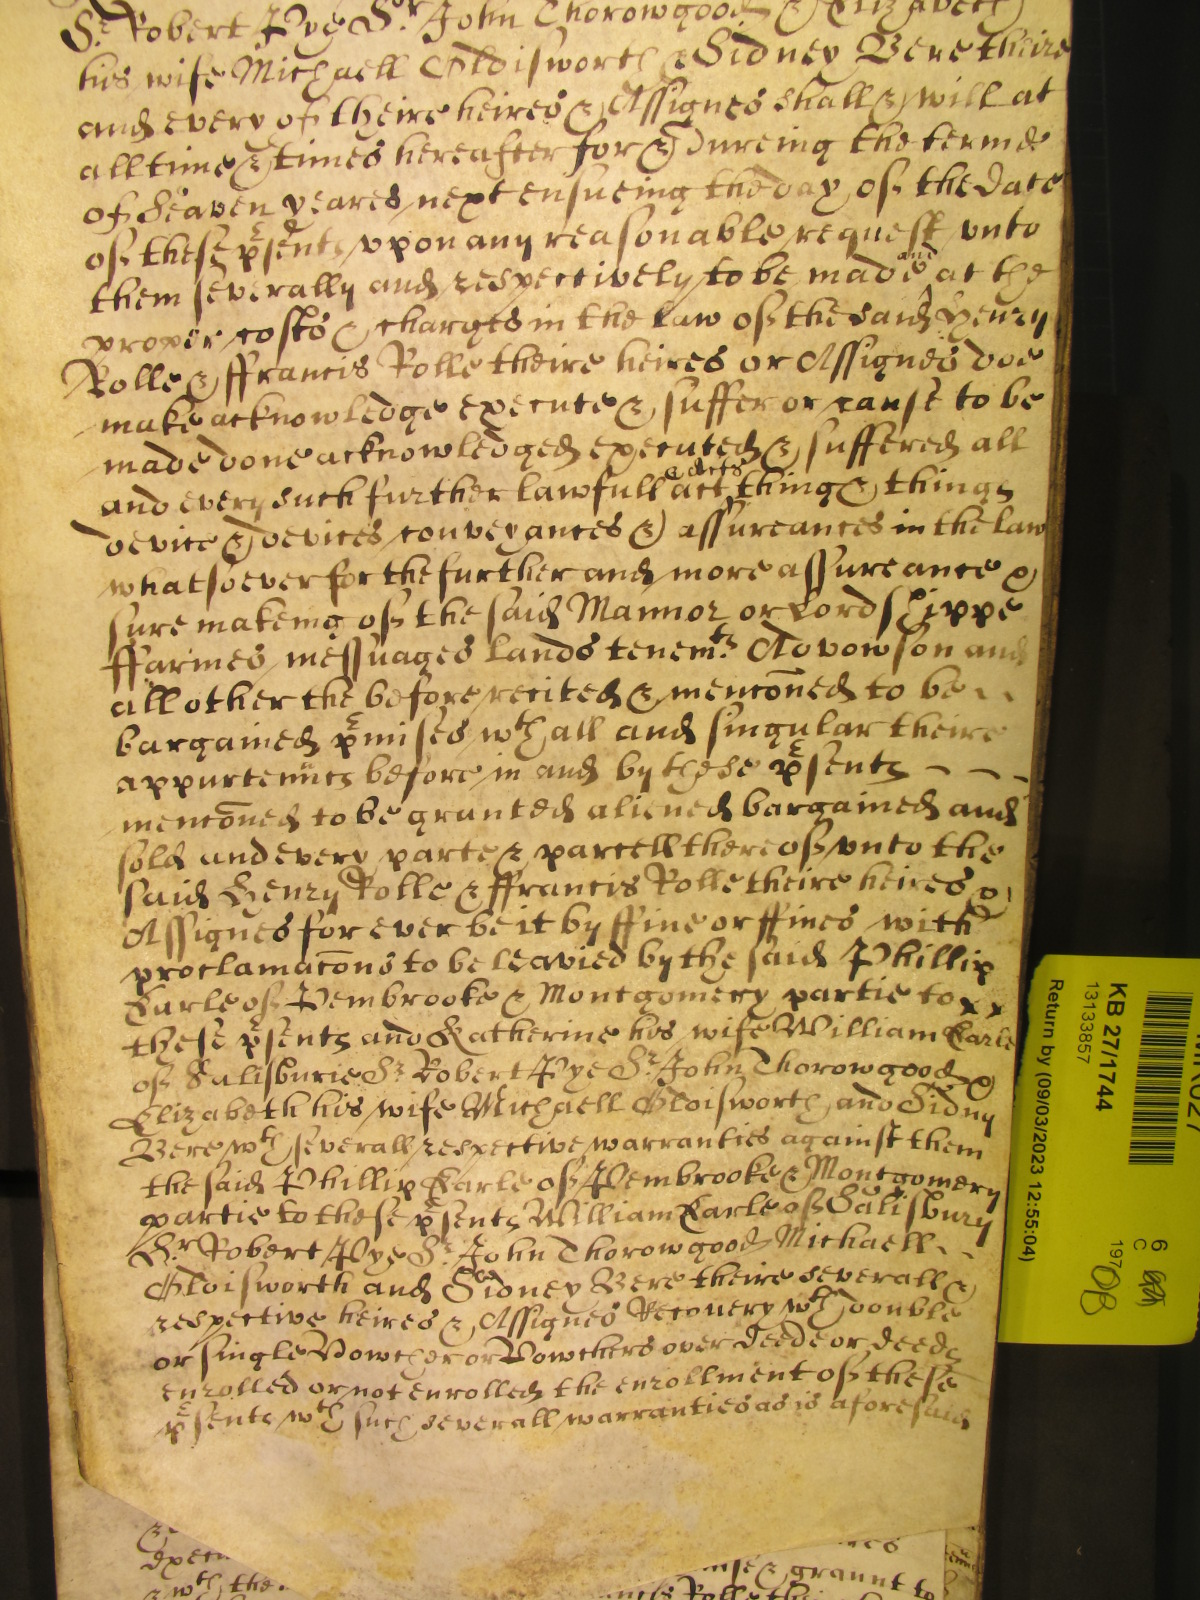 Sr Robert Pye Sr John Thorowgood & Elizabeth
his wife Michaell Oldisworth & Sidney Bere theire
and every of theire heires & Assignes shall & will at
all time & times hereafter for & dureing the terme
of Seaven yeares next ensueing the day of the date
of these psents upon any reasonable request unto
them severally and respectively to be made and at the
proper costs & charges in the law of the said Henry
Rolle & ffrancis Rolle theire heires or Assignes doe
make acknowledge execute & suffer or cause to be
made done acknowledged executed & suffered all
and every such further lawfull act & acts thing & things
device & devices conveyances & assureances in the law
whatsoever for the further and more assureance &
sure makeing of the said Mannor or Lordshippe
ffarmes messuages lands tenemts Advowson and
all other the before recited & mencōned to be - -
bargained pmises wth all and singular theire
appurtennts before in and by these psents - - -
mencōned to be granted aliened bargained and
sold and every parte & parcell thereof unto the
said Henry Rolle & ffrancis Rolle theire heires &
Assignes for ever be it by ffine or ffines with
proclamacōns to be leavied by the said Phillip
Earle of Pembrooke & Montgomery partie to x x
these psents and Katherine his wife William Earle
of Salisburie Sr Robert Pye Sr John Thorowgood &
Elizabeth his wife Michaell Oldisworth and Sidny
Bere wth severall respective warranties against them
the said Phillip Earle of Pembrooke & Montgomery
partie to these psents William Earle of Salisbury
Sr Robert Pye Sr John Thorowgood Michaell - -
Oldisworth and Sidney Bere theire severall &
respective heires & Assignes Recouery wth double
or single Vowcher or Vowchers over deede or deeds
enrolled or not enrolled the enrollment of these
psents wth such severall warranties as is aforesaid
& wth the
grannt to
Rolle
KB 27/1744
13133857
Return by (09/03/2023 12:55:04)
6
C
197